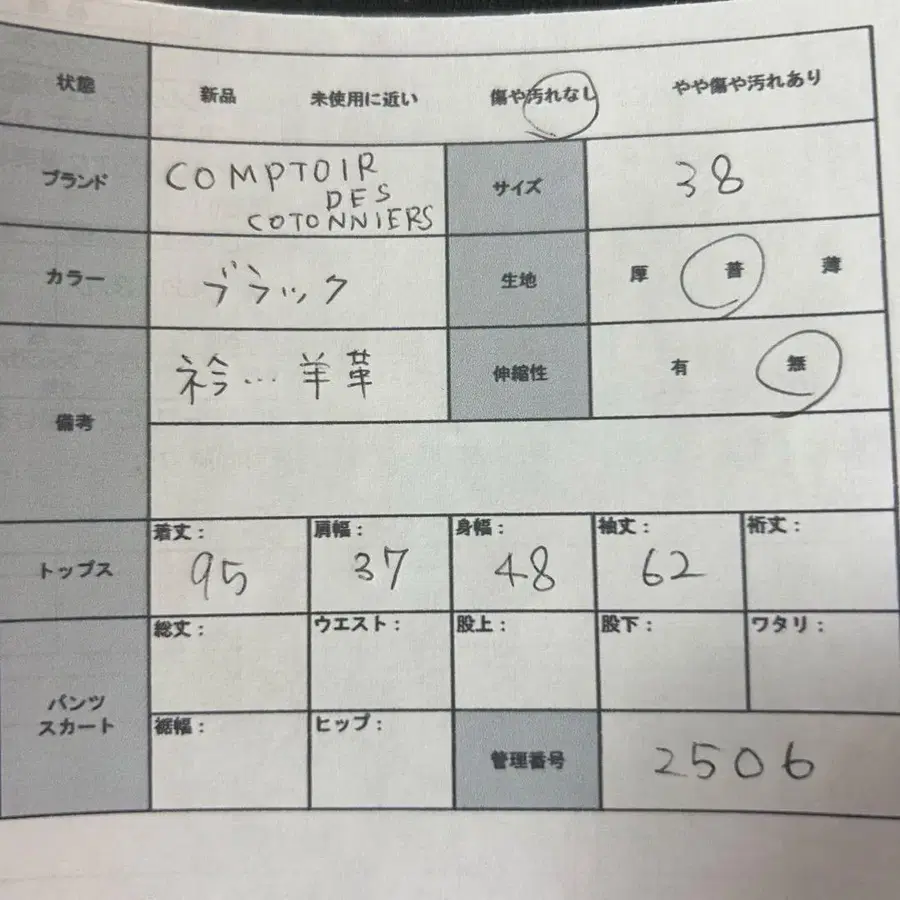 状態 新品 未使用に近い 傷や汚れなし やや傷や汚れあり
ブランド COMPTOIR DES COTONNIERS サイズ 38
カラー ブラック 生地 厚 普 薄
備考 衿…羊革 伸縮性 有 無
トップス 着丈: 95 肩幅: 37 身幅: 48 袖丈: 62 裄丈:
パンツ スカート 総丈: ウエスト: 股上: 股下: ワタリ:
裾幅: ヒップ: 管理番号 2506